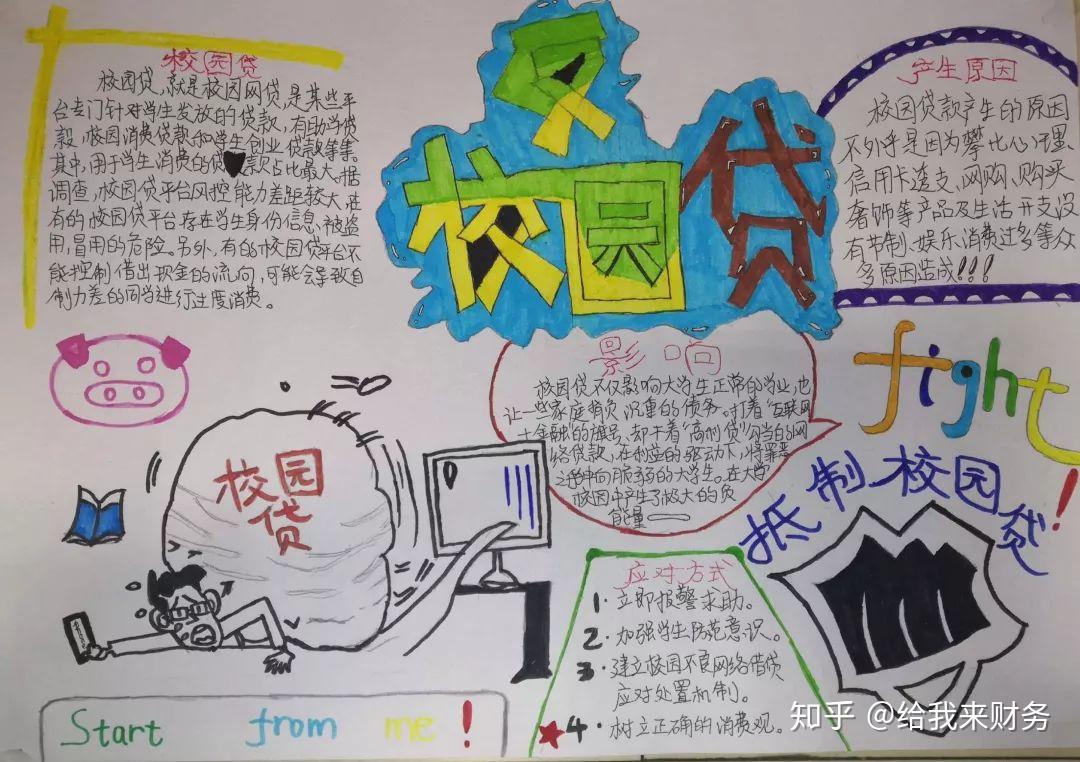 校园贷
校园贷，就是校园网贷，是某些平
台专门针对学生发放的贷款，有助学贷
款，校园消费贷款和学生创业贷款等等。
其中，用于学生消费的贷款占比最大。据
调查，校园贷平台风控能力差距较大，在
有的校园贷平台存在学生身份信息、被盗
用，冒用的危险。另外，有的校园贷平台不
能控制借出现金的流向，可能会导致自
制力差的同学进行过度消费。
反
校园贷
产生原因
校园贷款产生的原因
不外乎是因为攀比心理、
信用卡透支、网购、购买
奢饰等产品及生活开支没
有节制、娱乐消费过多等众
多原因造成!!!
影响
校园贷不仅影响大学生正常的学业，也
让一些家庭背负沉重的债务。打着“互联网
+金融”的旗号，却干着“高利贷”勾当的网
络贷款，在利益的驱动下，将罪恶
之手伸向脆弱的大学生。在大学
校园中产生了极大的负
能量——
fight
!
抵制校园贷
校园
贷
应对方式
1. 立即报警求助。
2. 加强学生防范意识。
3. 建立校园不良网络借贷
应对处置机制。
4. 树立正确的消费观。
Start from me!
知乎 @给我来财务